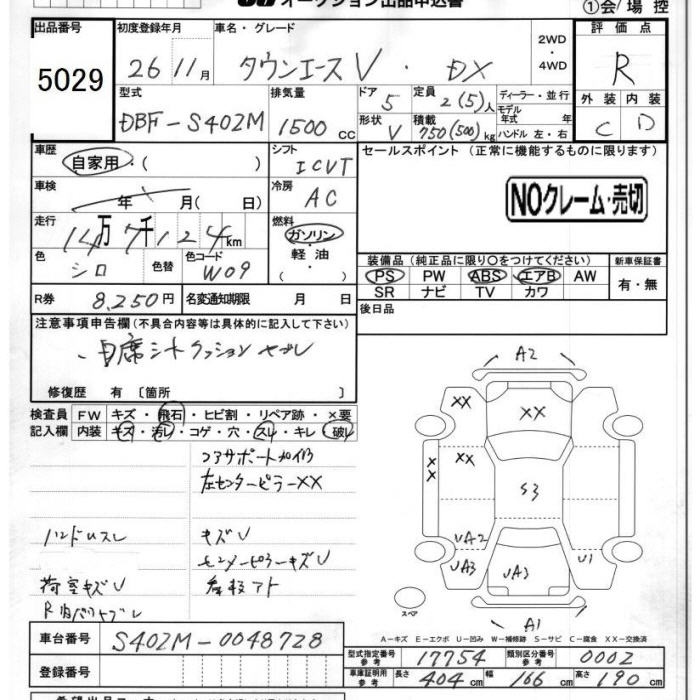 オークション出品申込書
①会/場 控
出品番号 初度登録年月 車名・グレード 2WD ・ 4WD 評価点
5029 26 11月 タウンエースV・DX R
型式 排気量 ドア 定員 ディーラー・並行 外装 内装
DBF-S402M 1500 cc 5 2(5)人 モデル年式 年 C D
形状 積載 ハンドル 左・右
V 750(500)kg
車歴 自家用・( ) シフト ICVT セールスポイント (正常に機能するものに限ります)
車検 年 月(日) 冷房 AC NOクレーム・売切
走行 14万7千124km 燃料 ガソリン・軽油・( )
色 シロ 色替 色コード W09
装備品(純正品に限り○をつけてください) 新車保証書
PS PW ABS エアB AW 有・無
SR ナビ TV カワ
R券 8,250円 名変通知期限 月 日 後日品
注意事項申告欄(不具合内容等は具体的に記入して下さい)
修復歴 有 〔箇所 〕
検査員 FW キズ・飛石・ヒビ割・リペア跡・×要
記入欄 内装 キズ・汚レ・コゲ・穴・スレ・キレ・破レ
コアサポート
左センターピラーXX
ハンドルスレ キズV
キズV
荷室キズV
A2
XX XX
XX XX
S3
UA2
UA3 UA3 U1
スペア
A1
A―キズ E―エクボ U―凹み W―補修跡 S―サビ C―腐食 XX―交換済
車台番号 S402M-0048728
型式指定番号 参考 17754 類別区分番号 参考 0002
登録番号
車庫証明用 参考 長さ 404cm 幅 166cm 高さ 190cm